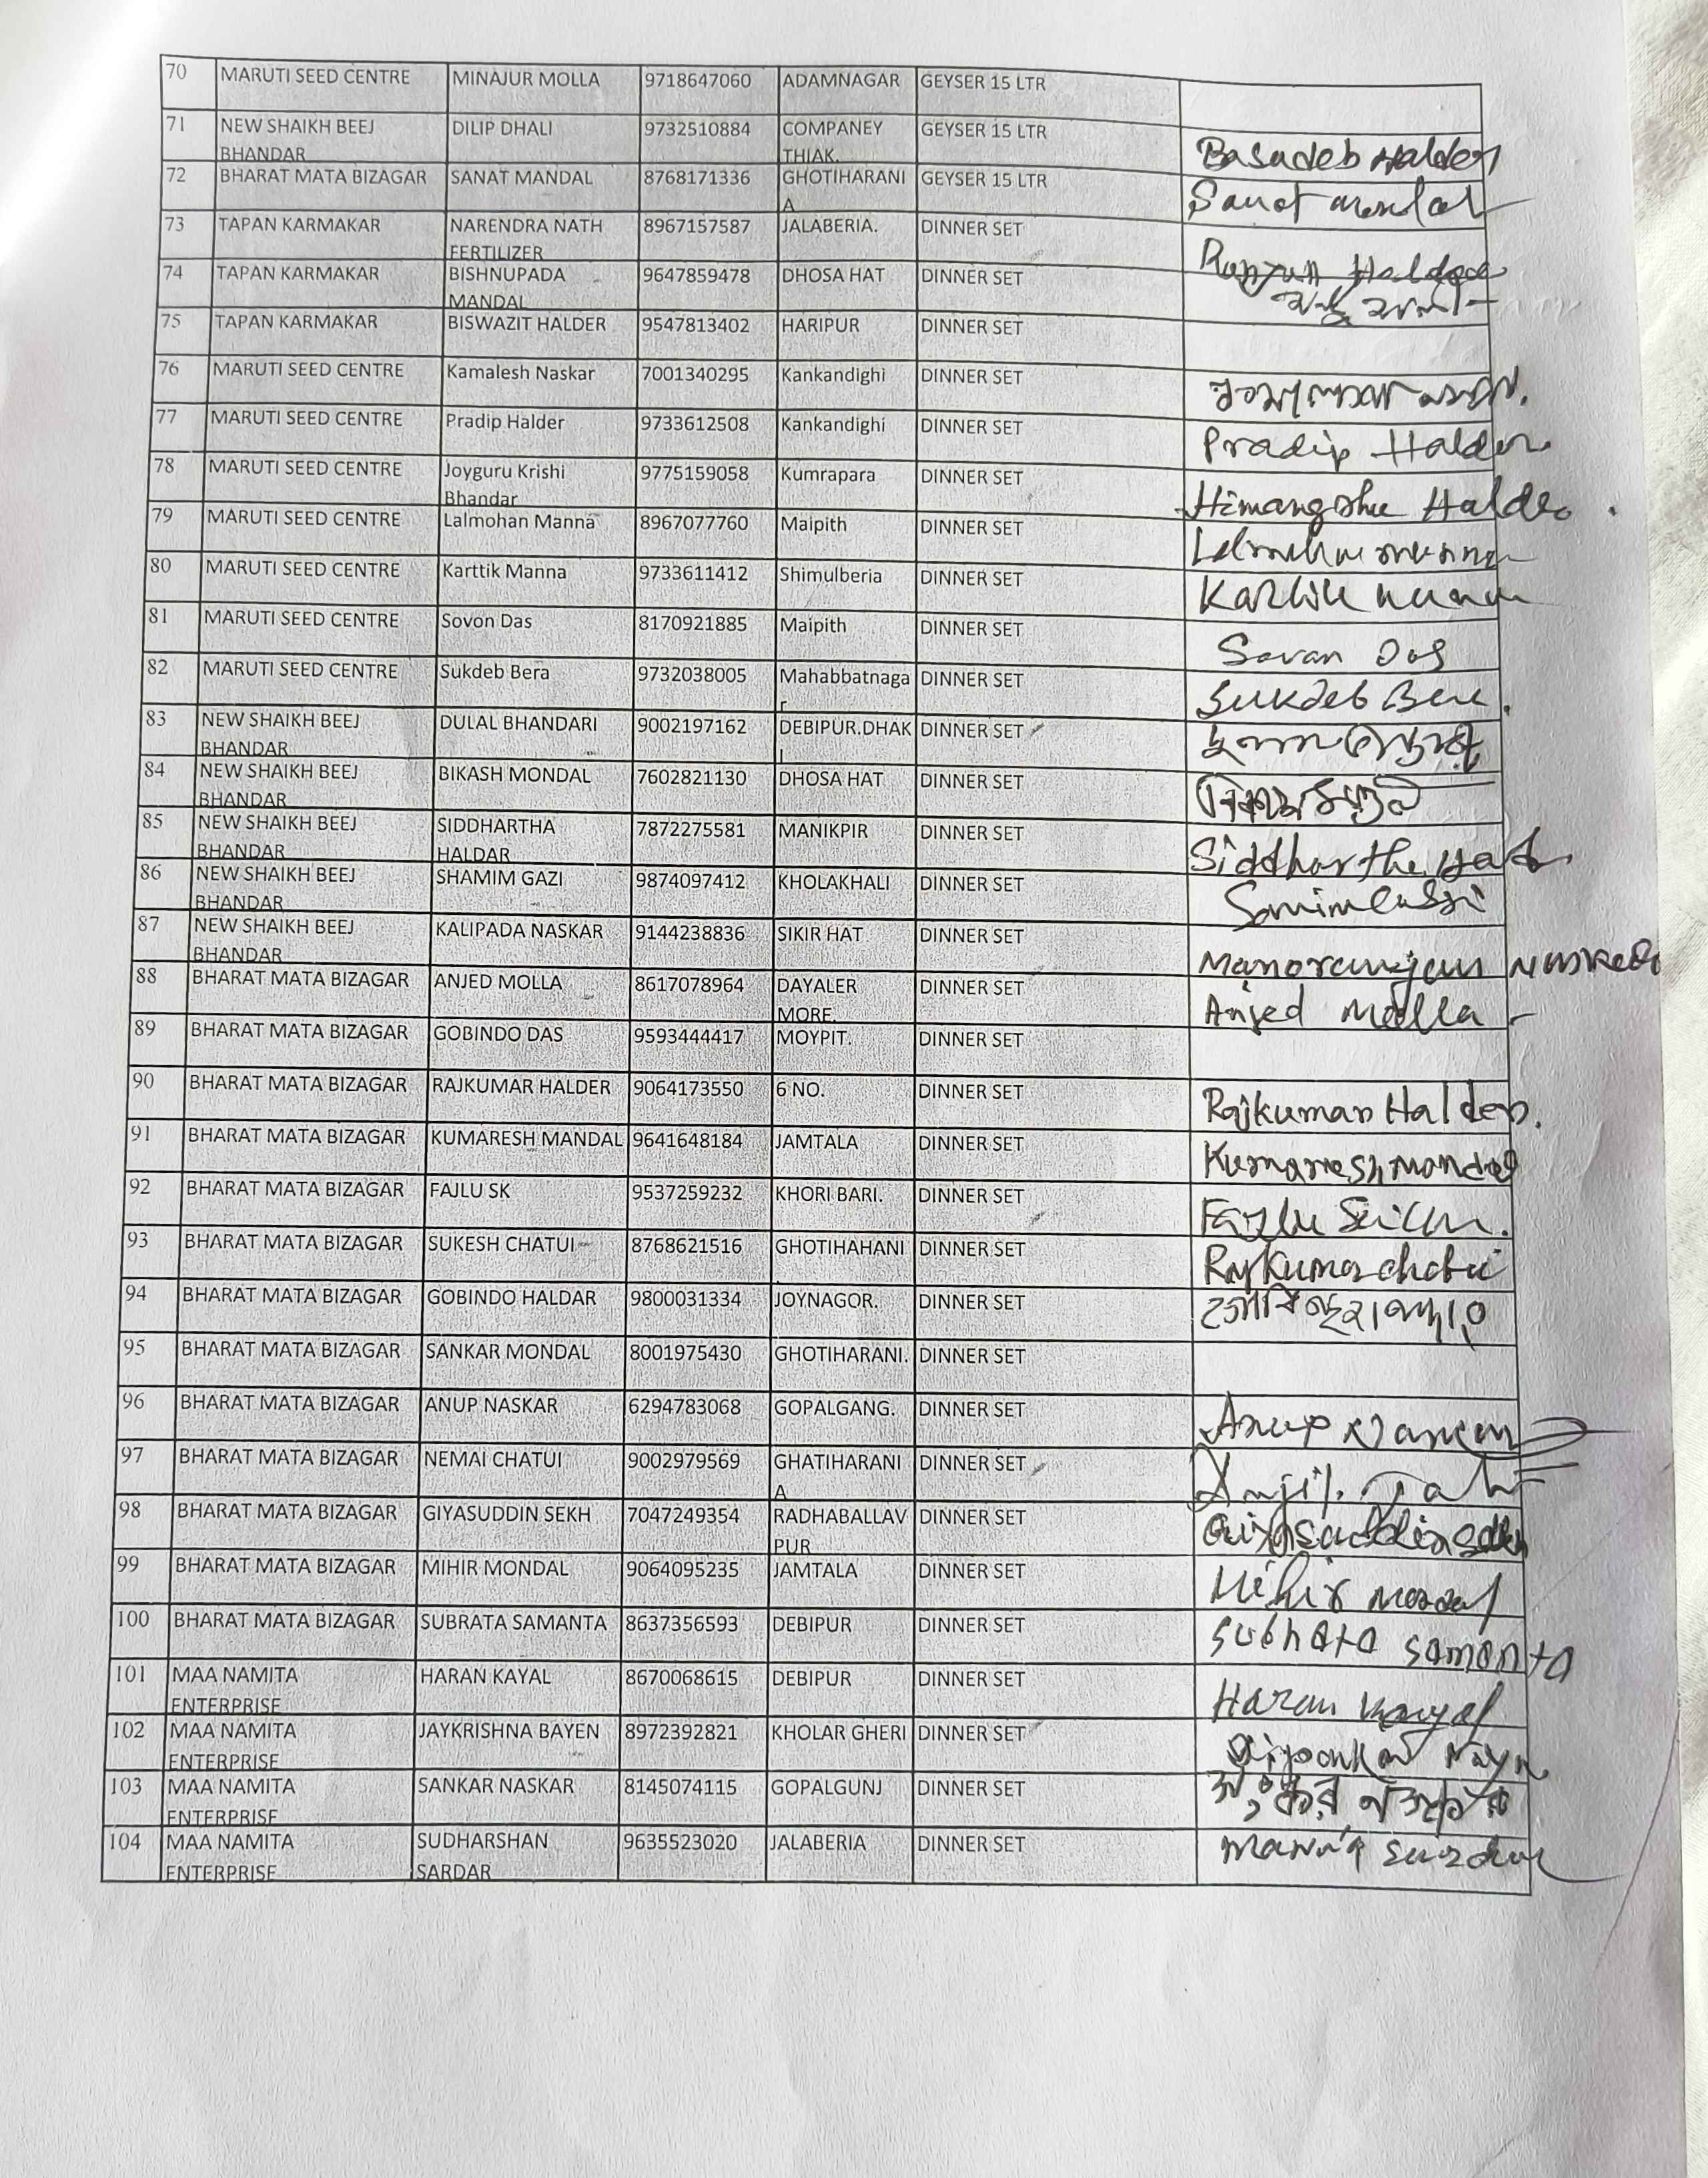 70 MARUTI SEED CENTRE MINAJUR MOLLA 9718647060 ADAMNAGAR GEYSER 15 LTR
71 NEW SHAIKH BEEJ DILIP DHALI 9732510884 COMPANEY GEYSER 15 LTR
BHANDAR THIAK. Basudeb Halder
72 BHARAT MATA BIZAGAR SANAT MANDAL 8768171336 GHOTIHARANI GEYSER 15 LTR Sanat Mandal
A
73 TAPAN KARMAKAR NARENDRA NATH 8967157587 JALABERIA. DINNER SET
FERTILIZER Halder
74 TAPAN KARMAKAR BISHNUPADA 9647859478 DHOSA HAT DINNER SET
MANDAL
75 TAPAN KARMAKAR BISWAZIT HALDER 9547813402 HARIPUR DINNER SET
76 MARUTI SEED CENTRE Kamalesh Naskar 7001340295 Kankandighi DINNER SET
77 MARUTI SEED CENTRE Pradip Halder 9733612508 Kankandighi DINNER SET Pradip Halder
78 MARUTI SEED CENTRE Joyguru Krishi 9775159058 Kumrapara DINNER SET
Bhandar Himangshu Halder
79 MARUTI SEED CENTRE Lalmohan Manna 8967077760 Maipith DINNER SET
80 MARUTI SEED CENTRE Karttik Manna 9733611412 Shimulberia DINNER SET
81 MARUTI SEED CENTRE Sovon Das 8170921885 Maipith DINNER SET Sovan Das
82 MARUTI SEED CENTRE Sukdeb Bera 9732038005 Mahabbatnaga DINNER SET Sukdeb Bera
r
83 NEW SHAIKH BEEJ DULAL BHANDARI 9002197162 DEBIPUR.DHAK DINNER SET
BHANDAR I
84 NEW SHAIKH BEEJ BIKASH MONDAL 7602821130 DHOSA HAT DINNER SET
BHANDAR
85 NEW SHAIKH BEEJ SIDDHARTHA 7872275581 MANIKPIR DINNER SET
BHANDAR HALDAR Siddhartha
86 NEW SHAIKH BEEJ SHAMIM GAZI 9874097412 KHOLAKHALI DINNER SET
BHANDAR
87 NEW SHAIKH BEEJ KALIPADA NASKAR 9144238836 SIKIR HAT DINNER SET
BHANDAR Manoranjan Naskar
88 BHARAT MATA BIZAGAR ANJED MOLLA 8617078964 DAYALER DINNER SET
MORE. Anjed Molla
89 BHARAT MATA BIZAGAR GOBINDO DAS 9593444417 MOYPIT. DINNER SET
90 BHARAT MATA BIZAGAR RAJKUMAR HALDER 9064173550 6 NO. DINNER SET Rajkumar Halder.
91 BHARAT MATA BIZAGAR KUMARESH MANDAL 9641648184 JAMTALA DINNER SET Kumaresh Mondal
92 BHARAT MATA BIZAGAR FAJLU SK 9537259232 KHORI BARI. DINNER SET
93 BHARAT MATA BIZAGAR SUKESH CHATUI 8768621516 GHOTIHAHANI DINNER SET Rajkumar chatui
94 BHARAT MATA BIZAGAR GOBINDO HALDAR 9800031334 JOYNAGOR. DINNER SET
95 BHARAT MATA BIZAGAR SANKAR MONDAL 8001975430 GHOTIHARANI. DINNER SET
96 BHARAT MATA BIZAGAR ANUP NASKAR 6294783068 GOPALGANG. DINNER SET Anup
97 BHARAT MATA BIZAGAR NEMAI CHATUI 9002979569 GHATIHARANI DINNER SET
A
98 BHARAT MATA BIZAGAR GIYASUDDIN SEKH 7047249354 RADHABALLAV DINNER SET
PUR
99 BHARAT MATA BIZAGAR MIHIR MONDAL 9064095235 JAMTALA DINNER SET Mihir Mondal
100 BHARAT MATA BIZAGAR SUBRATA SAMANTA 8637356593 DEBIPUR DINNER SET Subrata Samanta
101 MAA NAMITA HARAN KAYAL 8670068615 DEBIPUR DINNER SET
ENTERPRISE Haran Kayal
102 MAA NAMITA JAYKRISHNA BAYEN 8972392821 KHOLAR GHERI DINNER SET
ENTERPRISE
103 MAA NAMITA SANKAR NASKAR 8145074115 GOPALGUNJ DINNER SET
ENTERPRISE
104 MAA NAMITA SUDHARSHAN 9635523020 JALABERIA DINNER SET
ENTERPRISE SARDAR